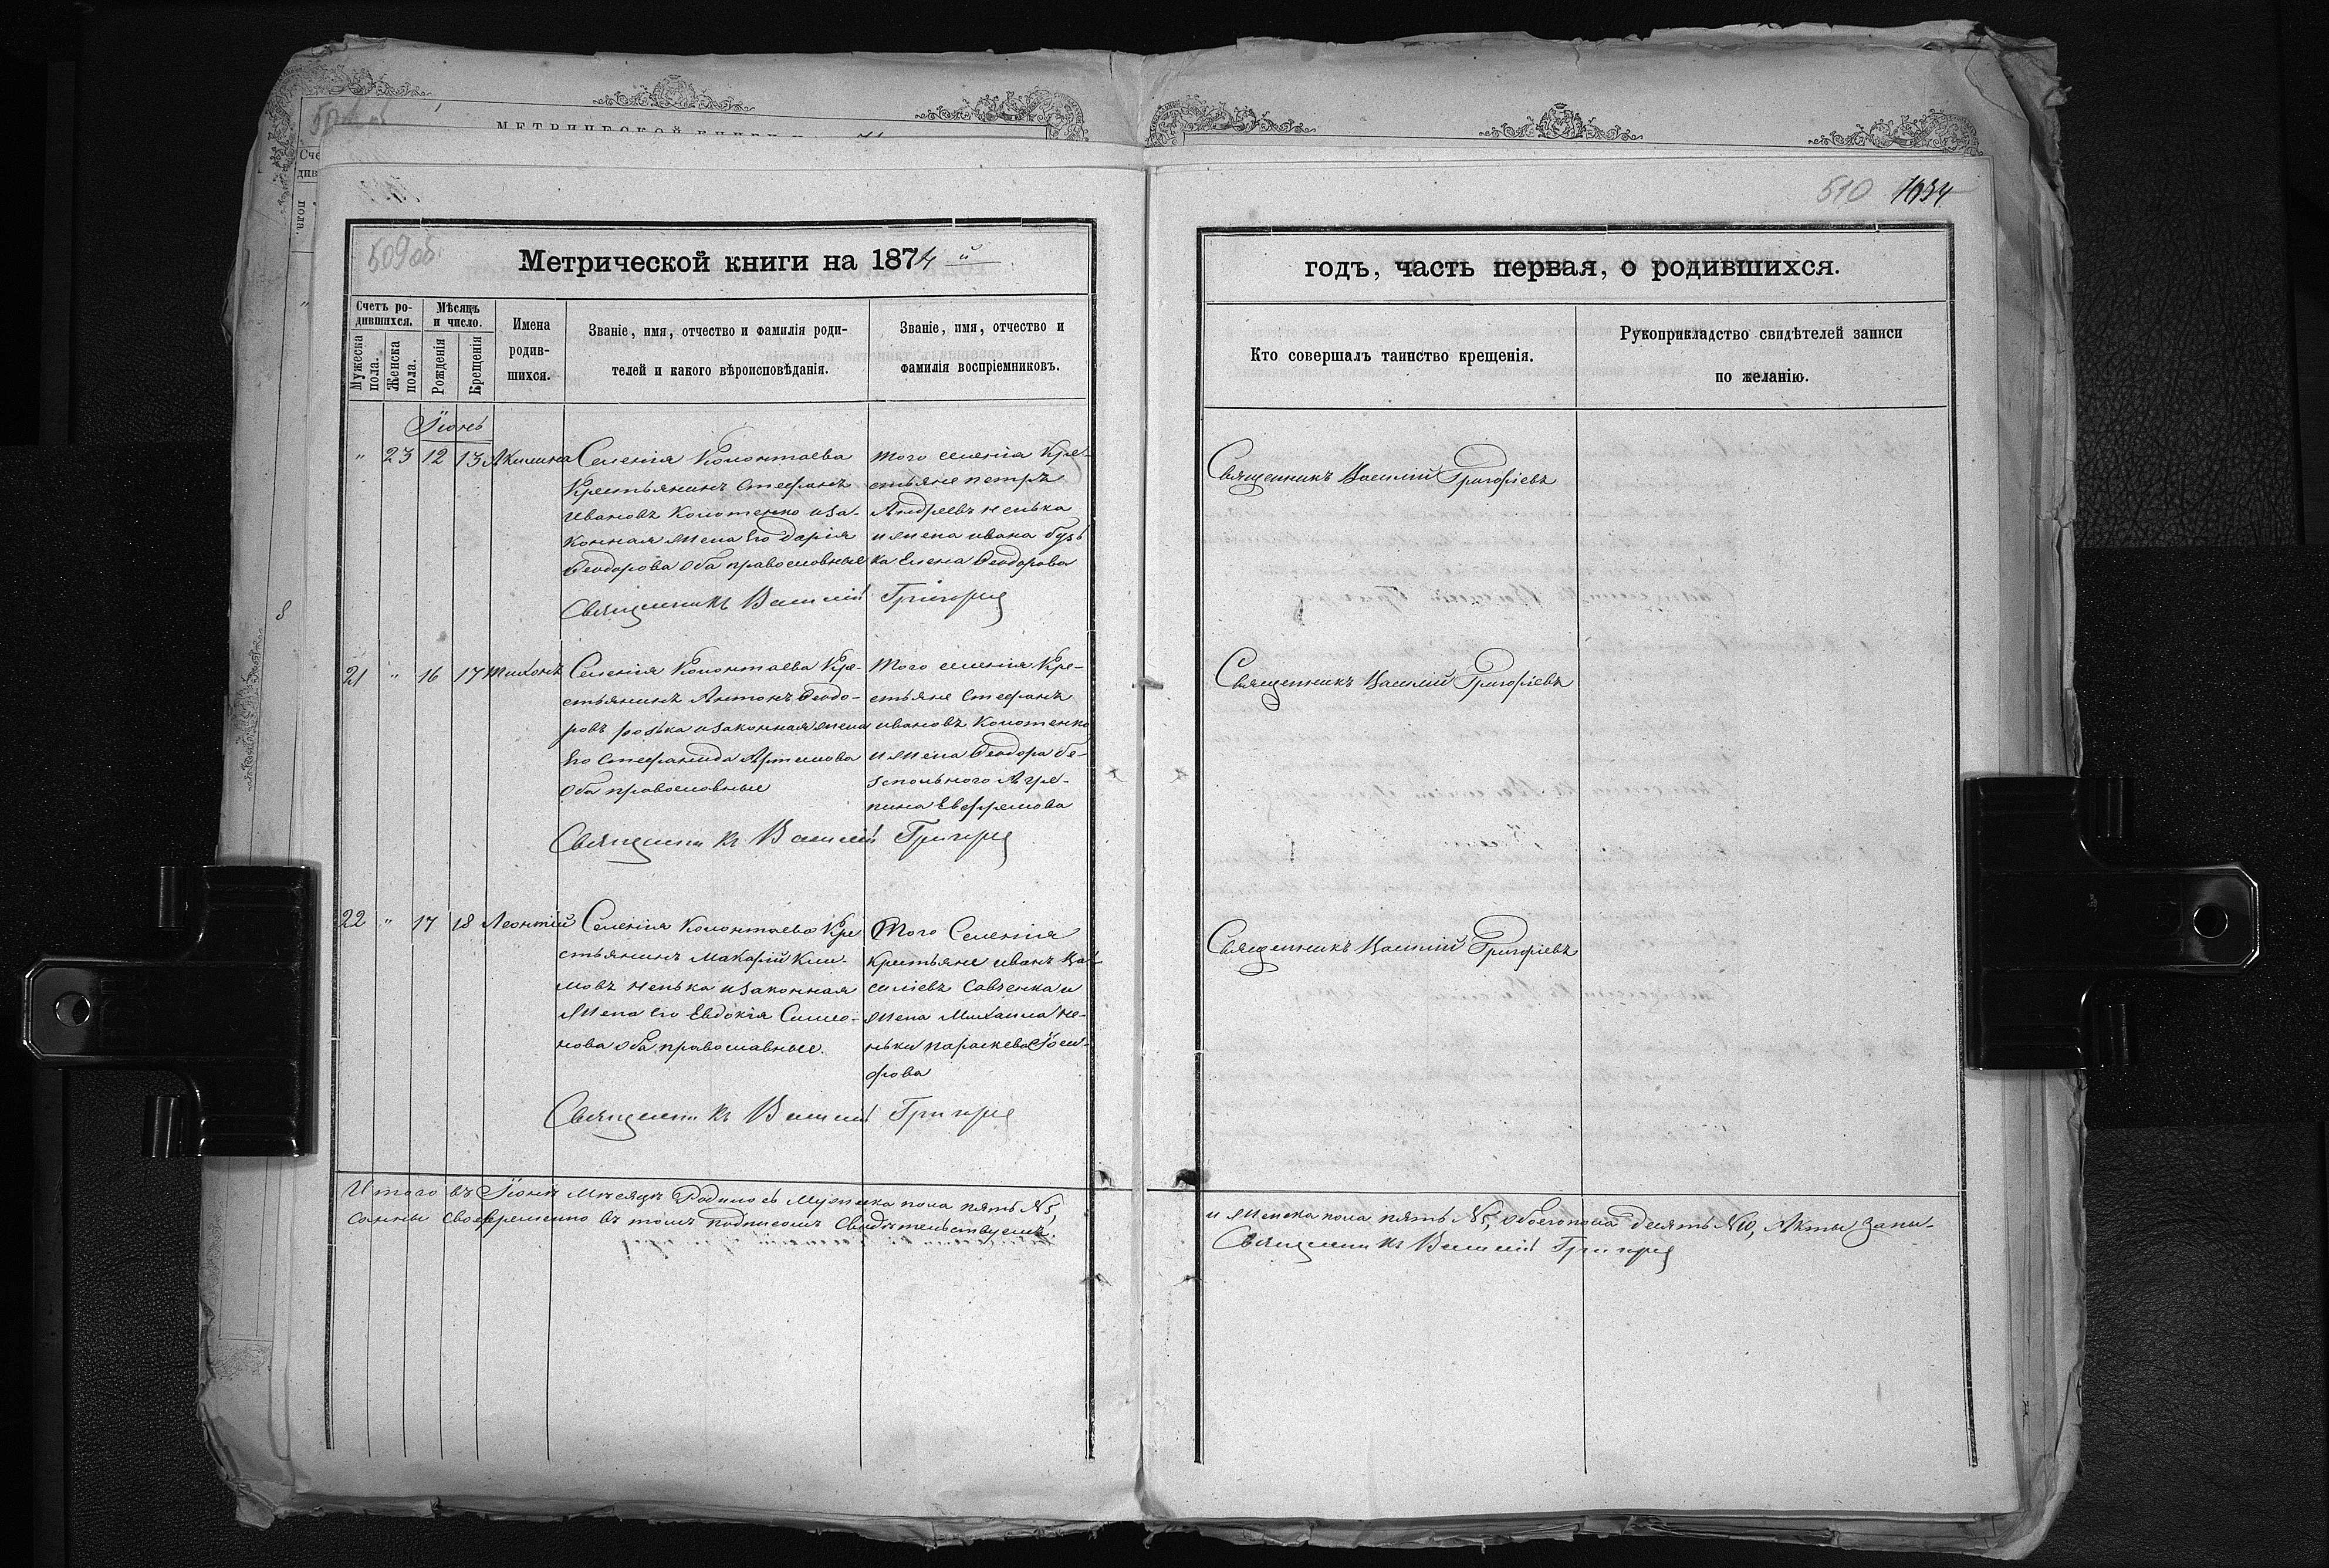 509об.
Метрической книги на 1874й
Счетъ ро-
дившихся.
Мѣсяцъ
и число.
Мужеска пола.
Женска пола.
Рожденія
Крещенія
Имена
родив-
шихся.
Званіе, имя, отчество и фамилія роди-
телей и какого вѣроисповѣданія.
Званіе, имя, отчество и
фамилія воспріемниковъ.
Іюнь
" 23 12 13 Акилина
Селенія Колонтаева
Крестьянинъ Стефанъ
Ивановъ Колотенко иза-
конная жена Его Дарія
Феодорова Оба православные
того селенія Кре-
стьяне петръ
Андреевъ непька
и жена ивана бузь
ка Елена Феодорова
Священникъ Василій
21 " 16 17 Тихонъ
Селенія Колонтаева Кре-
стьянинъ Антонъ Феодо-
ровъ изаконная жена
Его Стефанида Артемова
Оба православные
Того селенія Кре-
стьяне Стефанъ
ивановъ Колотенко
и жена Феодора бе-
зпольного Агре-
пина Евфремова
Священникъ Василій
22 " 17 18 Леонтій
Селенія Колонтаева Кре
стьянинъ Макарій Кли-
мовъ непька изаконная
жена Его Евдокія Симео-
нова Оба православные.
Того Селенія
Крестьяне иванъ Ва-
силіевъ Савченка и
жена Михаила не-
ньки параскева Іоси-
фова
Священникъ Василій
Итого въ Іюнѣ Мѣсяцѣ Родилось Мужеска пола пять №5,
санны своевременно въ томъ подписомъ Свидѣтельствуемъ.
510 1034
годъ, часть первая, о родившихся.
Кто совершалъ таинство крещенія.
Рукоприкладство свидѣтелей записи
по желанію.
Священникъ Василій Григоріевъ
Священникъ Василій Григоріевъ
Священникъ Василій Григоріевъ
и женска пола пять №5, обоего пола десять №10, Акты запи-
Священникъ Василій